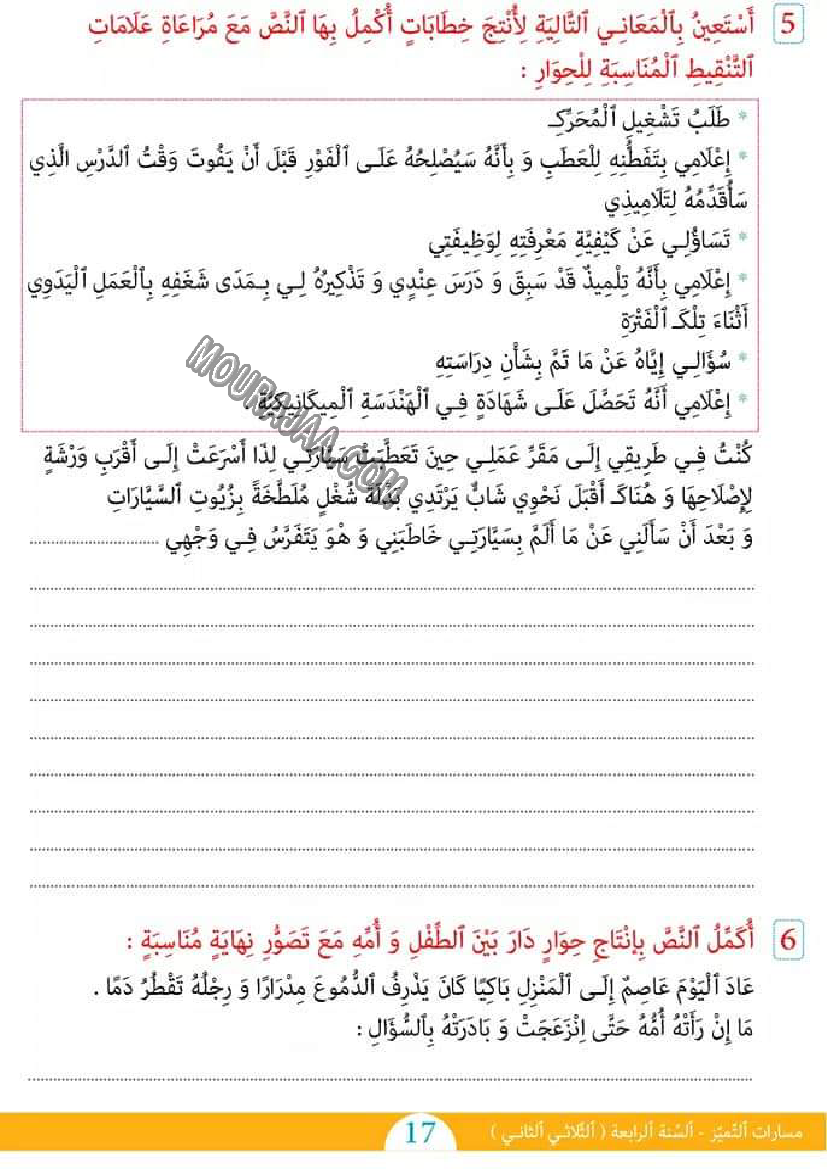 5 أَسْتَعِينُ بِٱلْمَعَانِي ٱلتَّالِيَةِ لِأُنْتِجَ خِطَابَاتٍ أُكْمِلُ بِهَا ٱلنَّصَّ مَعَ مُرَاعَاةِ عَلَامَاتِ
ٱلتَّنْقِيطِ ٱلْمُنَاسِبَةِ لِلْحِوَارِ :
* طَلَبُ تَشْغِيلِ ٱلْمُحَرِّكِ
* إِعْلَامِي بِتَفَطُّنِهِ لِلْعَطَبِ وَ بِأَنَّهُ سَيُصْلِحُهُ عَلَى ٱلْفَوْرِ قَبْلَ أَنْ يَفُوتَ وَقْتُ ٱلدَّرْسِ ٱلَّذِي
سَأُقَدِّمُهُ لِتَلَامِيذِي
* تَسَاؤُلِي عَنْ كَيْفِيَّةِ مَعْرِفَتِهِ لِوَظِيفَتِي
* إِعْلَامِي بِأَنَّهُ تِلْمِيذٌ قَدْ سَبَقَ وَ دَرَسَ عِنْدِي وَ تَذْكِيرُهُ لِي بِمَدَى شَغَفِهِ بِٱلْعَمَلِ ٱلْيَدَوِي
أَثْنَاءَ تِلْكَ ٱلْفَتْرَةِ
* سُؤَالِي إِيَّاهُ عَنْ مَا تَمَّ بِشَأْنِ دِرَاسَتِهِ
* إِعْلَامِي أَنَّهُ تَحَصَّلَ عَلَى شَهَادَةٍ فِي ٱلْهَنْدَسَةِ ٱلْمِيكَانِيكِيَّةِ.
MOURAJAA.COM
كُنْتُ فِي طَرِيقِي إِلَى مَقَرِّ عَمَلِي حِينَ تَعَطَّبَتْ سَيَّارَتِي لِذَا أَسْرَعَتْ إِلَى أَقْرَبِ وَرْشَةٍ
لِإِصْلَاحِهَا وَ هُنَاكَ أَقْبَلَ نَحْوِي شَابٌّ يَرْتَدِي بَدْلَةَ شُغْلٍ مُلَطَّخَةً بِزُيُوتِ ٱلسَّيَّارَاتِ
وَ بَعْدَ أَنْ سَأَلَنِي عَنْ مَا أَلَمَّ بِسَيَّارَتِي خَاطَبَنِي وَ هُوَ يَتَفَرَّسُ فِي وَجْهِي ..............................
6 أُكَمِّلُ ٱلنَّصَّ بِإِنْتَاجِ حِوَارٍ دَارَ بَيْنَ ٱلطِّفْلِ وَ أُمِّهِ مَعَ تَصَوُّرِ نِهَايَةٍ مُنَاسِبَةٍ :
عَادَ ٱلْيَوْمَ عَاصِمٌ إِلَى ٱلْمَنْزِلِ بَاكِيًا كَانَ يَذْرِفُ ٱلدُّمُوعَ مِدْرَارًا وَ رِجْلُهُ تَقْطُرُ دَمًا .
مَا إِنْ رَأَتْهُ أُمُّهُ حَتَّى اِنْزَعَجَتْ وَ بَادَرَتْهُ بِٱلسُّؤَالِ :
مسارات ٱلتّميّز - ٱلسّنة ٱلرابعة ( ٱلثّلاثي ٱلثاني )
17